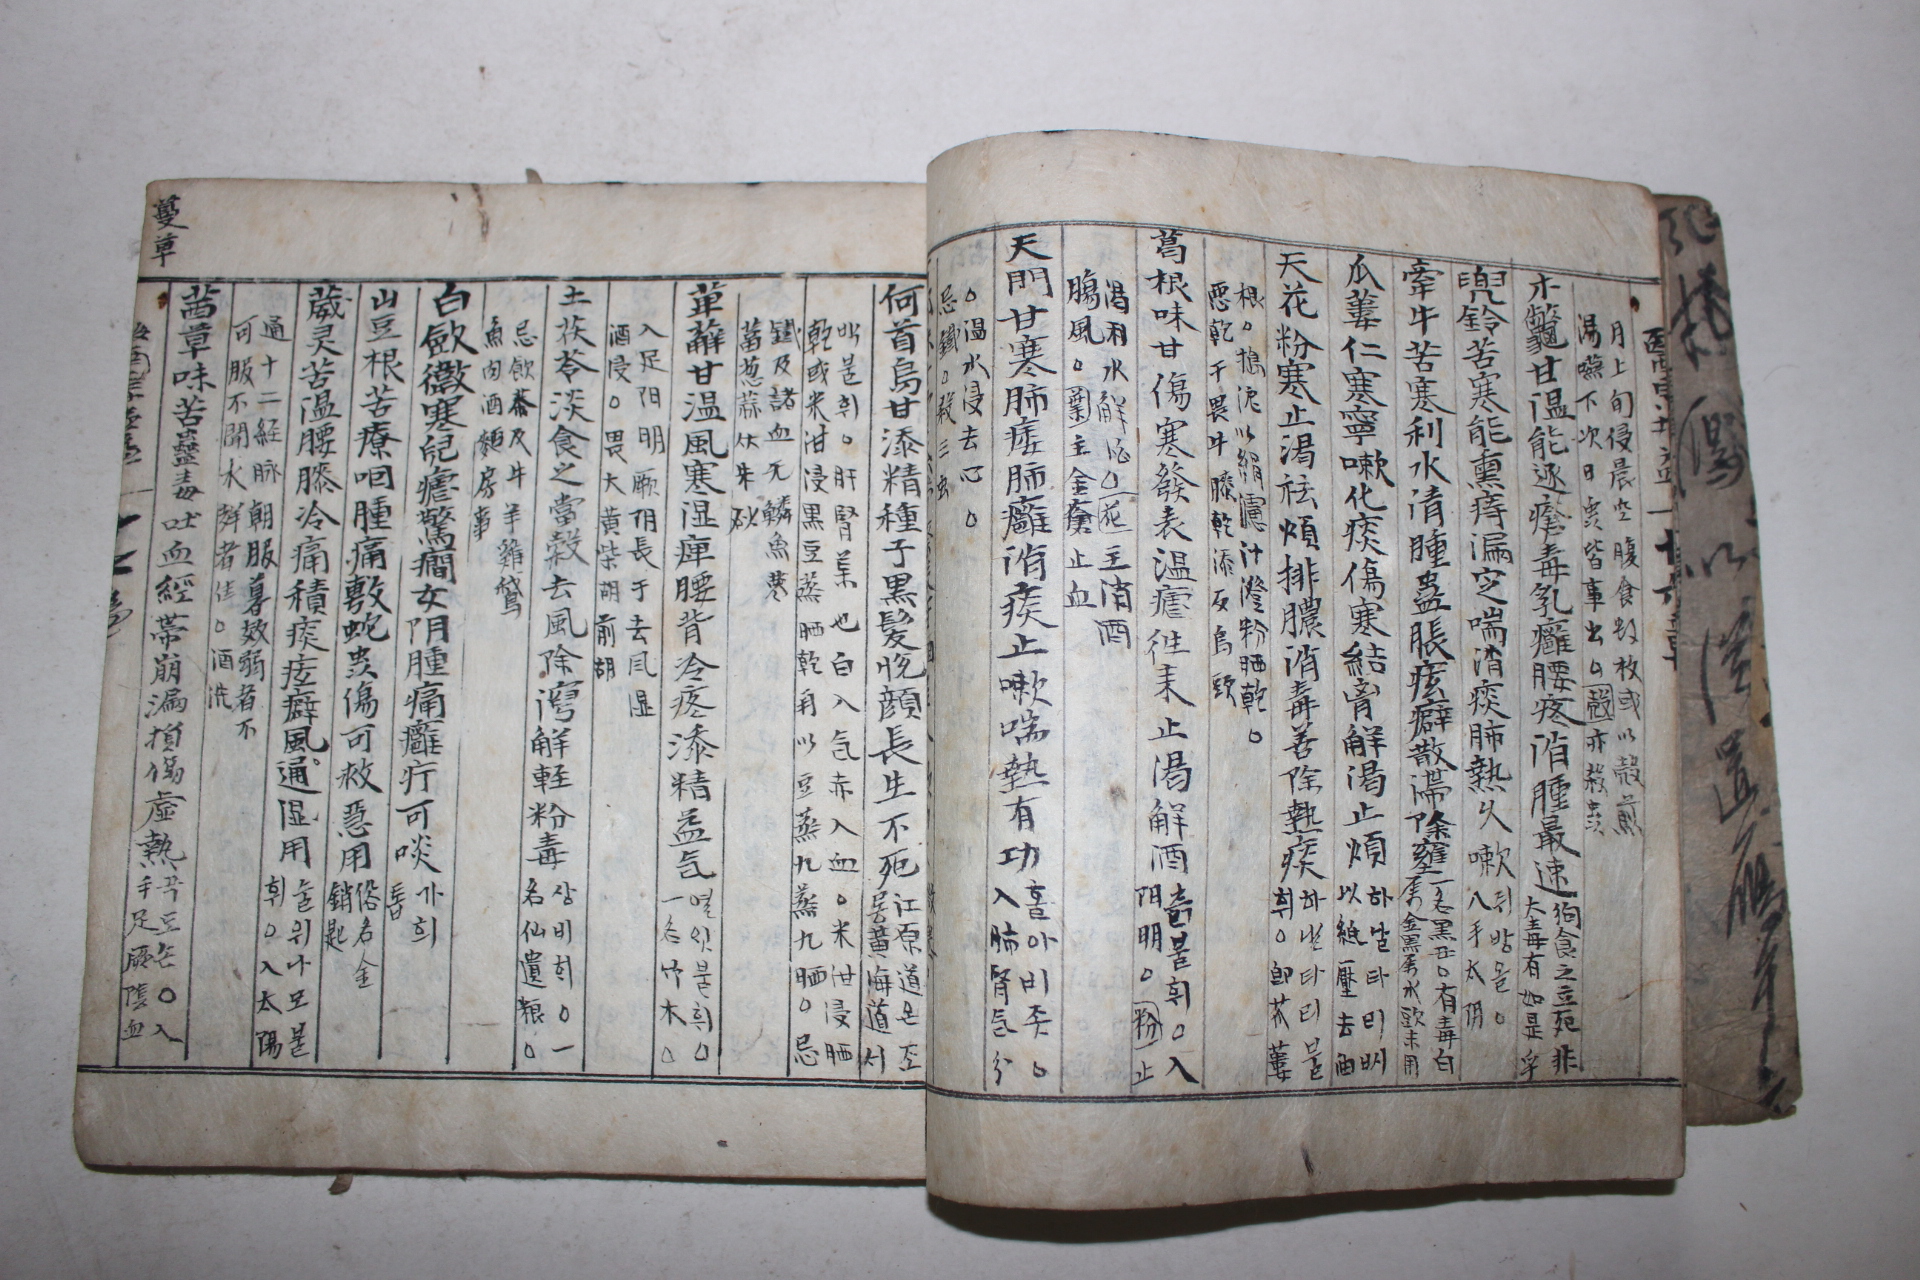 月上旬侵晨空腹食數枚或以殼煎
湯嚥下次日虫皆事出○殼亦殺虫
木鱉甘温能逐瘡毒乳癰腰疼消腫最速
狗食之立死非
大毒有如是乎
兜鈴苦寒能熏痔漏定喘消痰肺熱久嗽
쥐방울○
入手太阴
牽牛苦寒利水消腫蠱脹痃癖散滯除壅
一名黑丑○有毒白
屬金黑屬水炒末用
瓜蔞仁寒寧嗽化痰傷寒結胷解渴止煩
하날타리씨
以紙壓去油
天花粉寒止渴祛煩排膿消毒善除熱痰
하날타리불
휘○卽苽蔞
根○搗泥以絹濾汁澄粉晒乾○
惡乾干畏牛膝乾漆反烏頭
葛根味甘傷寒發表温瘧往来止渴解酒
츩불휘○入
阳明○粉止
渴利水解酒○花主消酒
腸風○葉主金瘡止血
天門甘寒肺痿肺癰消痰止嗽喘熱有功
홀아비좃○
入肺腎气分
○温水浸去心○
忌鐵○殺三虫
何首烏甘添精種子黑髮悅顔長生不死
江原道은죠
롱黃海道서
박불휘○肝腎薬也白入气赤入血○米泔浸晒
乾或米泔浸黑豆蒸晒乾再以豆蒸九蒸九晒○忌
鐵及諸血无鱗魚蔞
葍葱蒜伏朱砂
萆薢甘温風寒湿痺腰背冷疼添精益气
멸앳불휘○
一名竹木○
入足阳明厥阴長于去風湿
酒浸○畏大黃柴胡前胡
土茯苓淡食之當穀去風除濕解軽粉毒
상비희○一
名仙遺粮○
忌飮茶及牛羊雞鵞
魚肉酒麵房事
白斂微寒兒瘧驚癎女阴腫痛癰疔可啖
가희
톱
山豆根苦療咽腫痛敷蛇虫傷可救急用
俗名金
銷匙
葳灵苦温腰膝冷痛積痰痃癖風通湿用
술위나모불
휘○入太陽
通十二経脉朝服暮效弱者不
可服不聞水聲者佳○酒洗
茜草味苦蠱毒吐血經帶崩漏損傷虛熱
곡도숀○入
手足厥陰血
蔓草